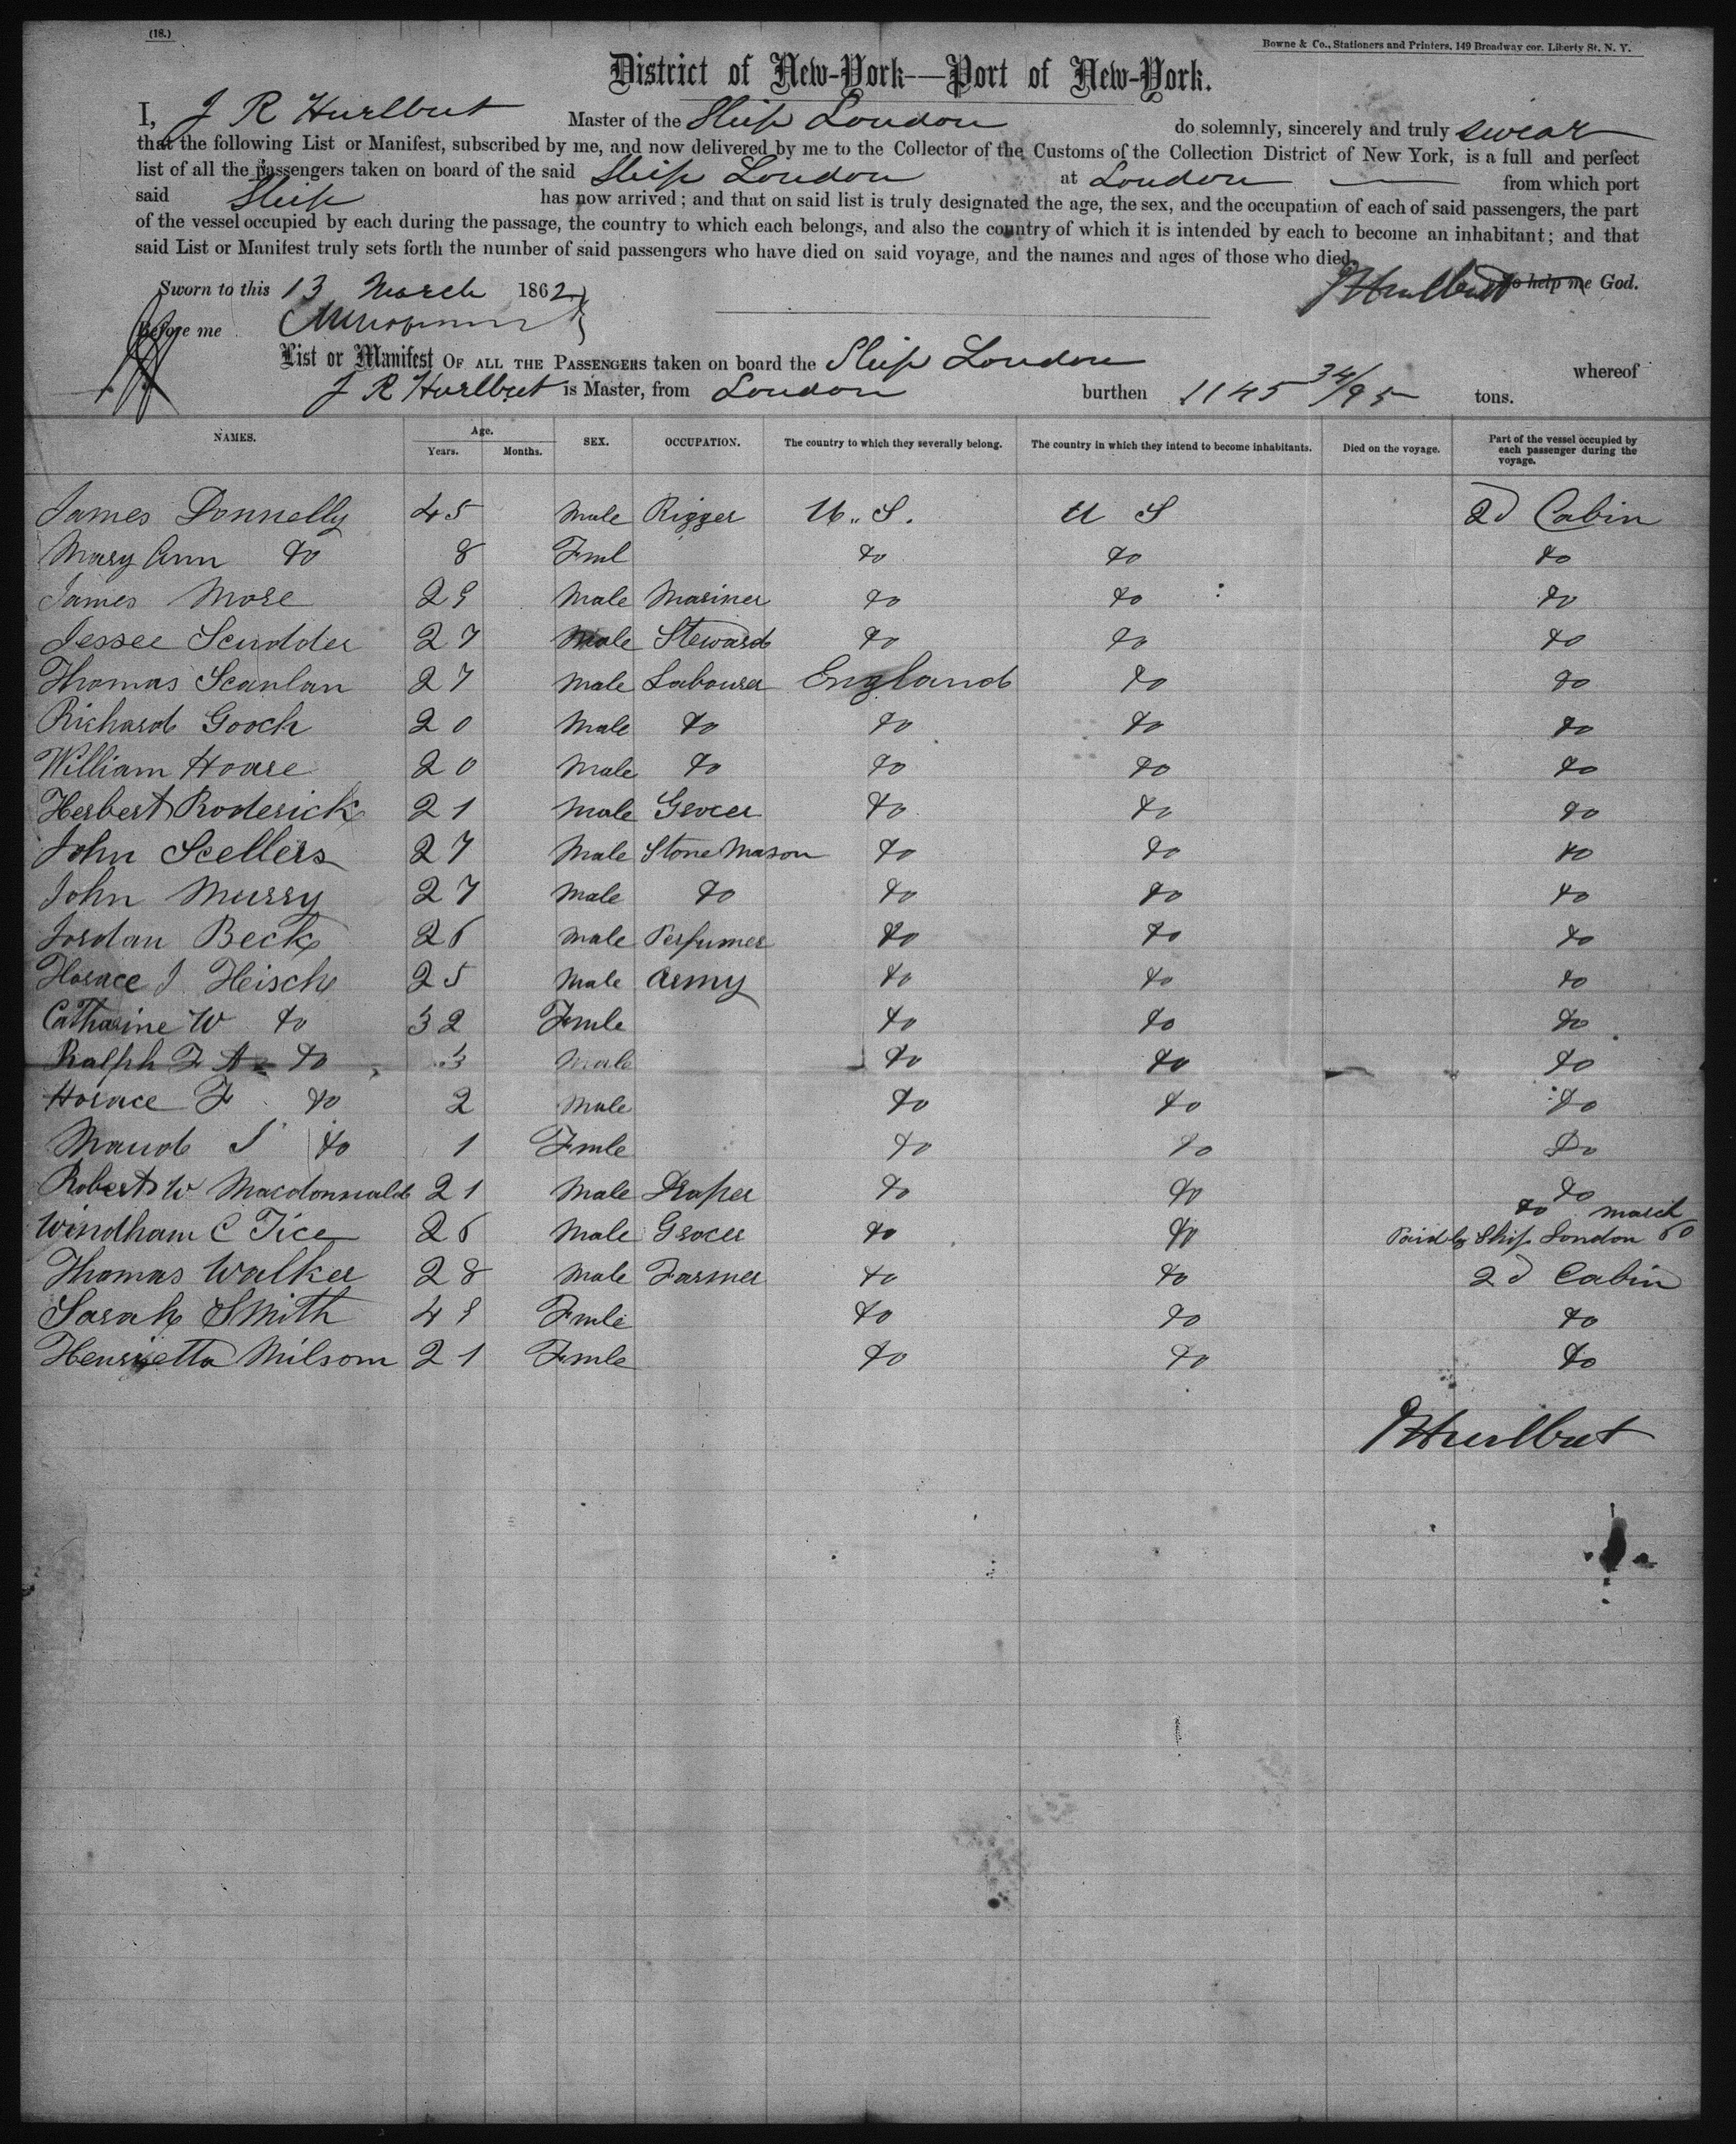 (18.)
Bowne & Co., Stationers and Printers, 149 Broadway cor. Liberty St. N. Y.
District of New-York—Port of New-York.
I, J R Hurlbut Master of the Ship London do solemnly, sincerely and truly swear
that the following List or Manifest, subscribed by me, and now delivered by me to the Collector of the Customs of the Collection District of New York, is a full and perfect
list of all the passengers taken on board of the said Ship London at London from which port
said Ship has now arrived; and that on said list is truly designated the age, the sex, and the occupation of each of said passengers, the part
of the vessel occupied by each during the passage, the country to which each belongs, and also the country of which it is intended by each to become an inhabitant; and that
said List or Manifest truly sets forth the number of said passengers who have died on said voyage, and the names and ages of those who died.
Sworn to this 13 March 1862 So help me God.
J R Hurlbut
Before me
List or Manifest OF ALL THE PASSENGERS taken on board the Ship London whereof
J R Hurlbut is Master, from London burthen 1145 34/95 tons.
NAMES. Age. Years. Months. SEX. OCCUPATION. The country to which they severally belong. The country in which they intend to become inhabitants. Died on the voyage. Part of the vessel occupied by each passenger during the voyage.
James Donnelly 45 Male Rigger U.. S. U S 2d Cabin
Mary Ann do 8 Fml do do do
James More 29 Male Mariner do do do
Jessee Scudder 27 Male Steward do do do
Thomas Scanlan 27 Male Labourer England do do
Richard Gooch 20 Male do do do do
William Hoare 20 Male do do do do
Herbert Roderick 21 Male Grocer do do do
John Scellers 27 Male Stone Mason do do do
John Murry 27 Male do do do do
Jordan Beck 26 Male Perfumer do do do
Horace J Heisch 25 Male Army do do do
Catharine W do 32 Fmle do do do
Ralph F A do 3 Male do do do
Horace F do 2 Male do do do
Maud J do 1 Fmle do do do
Robert W Macdonnald 21 Male Draper do do do
Windham C Tice 26 Male Grocer do do do march
Paid by Ship London 60
Thomas Walker 28 Male Farmer do do 2d Cabin
Sarah Smith 49 Fmle do do do
Henrietta Milsom 21 Fmle do do do
J R Hurlbut